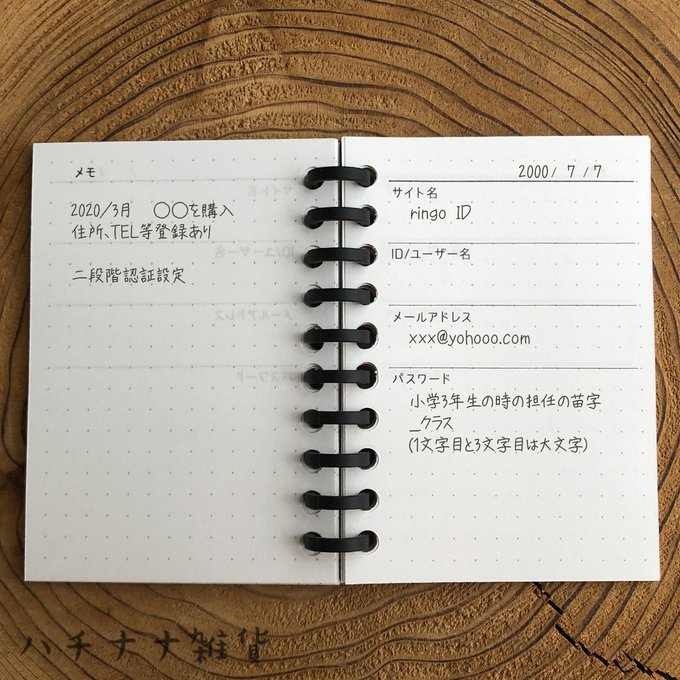 メモ
2020/3月 〇〇を購入
住所、TEL等登録あり
二段階認証設定
2000/ 7 / 7
サイト名
ringo ID
ID/ユーザー名
メールアドレス
xxx@yohooo.com
パスワード
小学3年生の時の担任の苗字
_クラス
(1文字目と3文字目は大文字)
ハチナナ雑貨